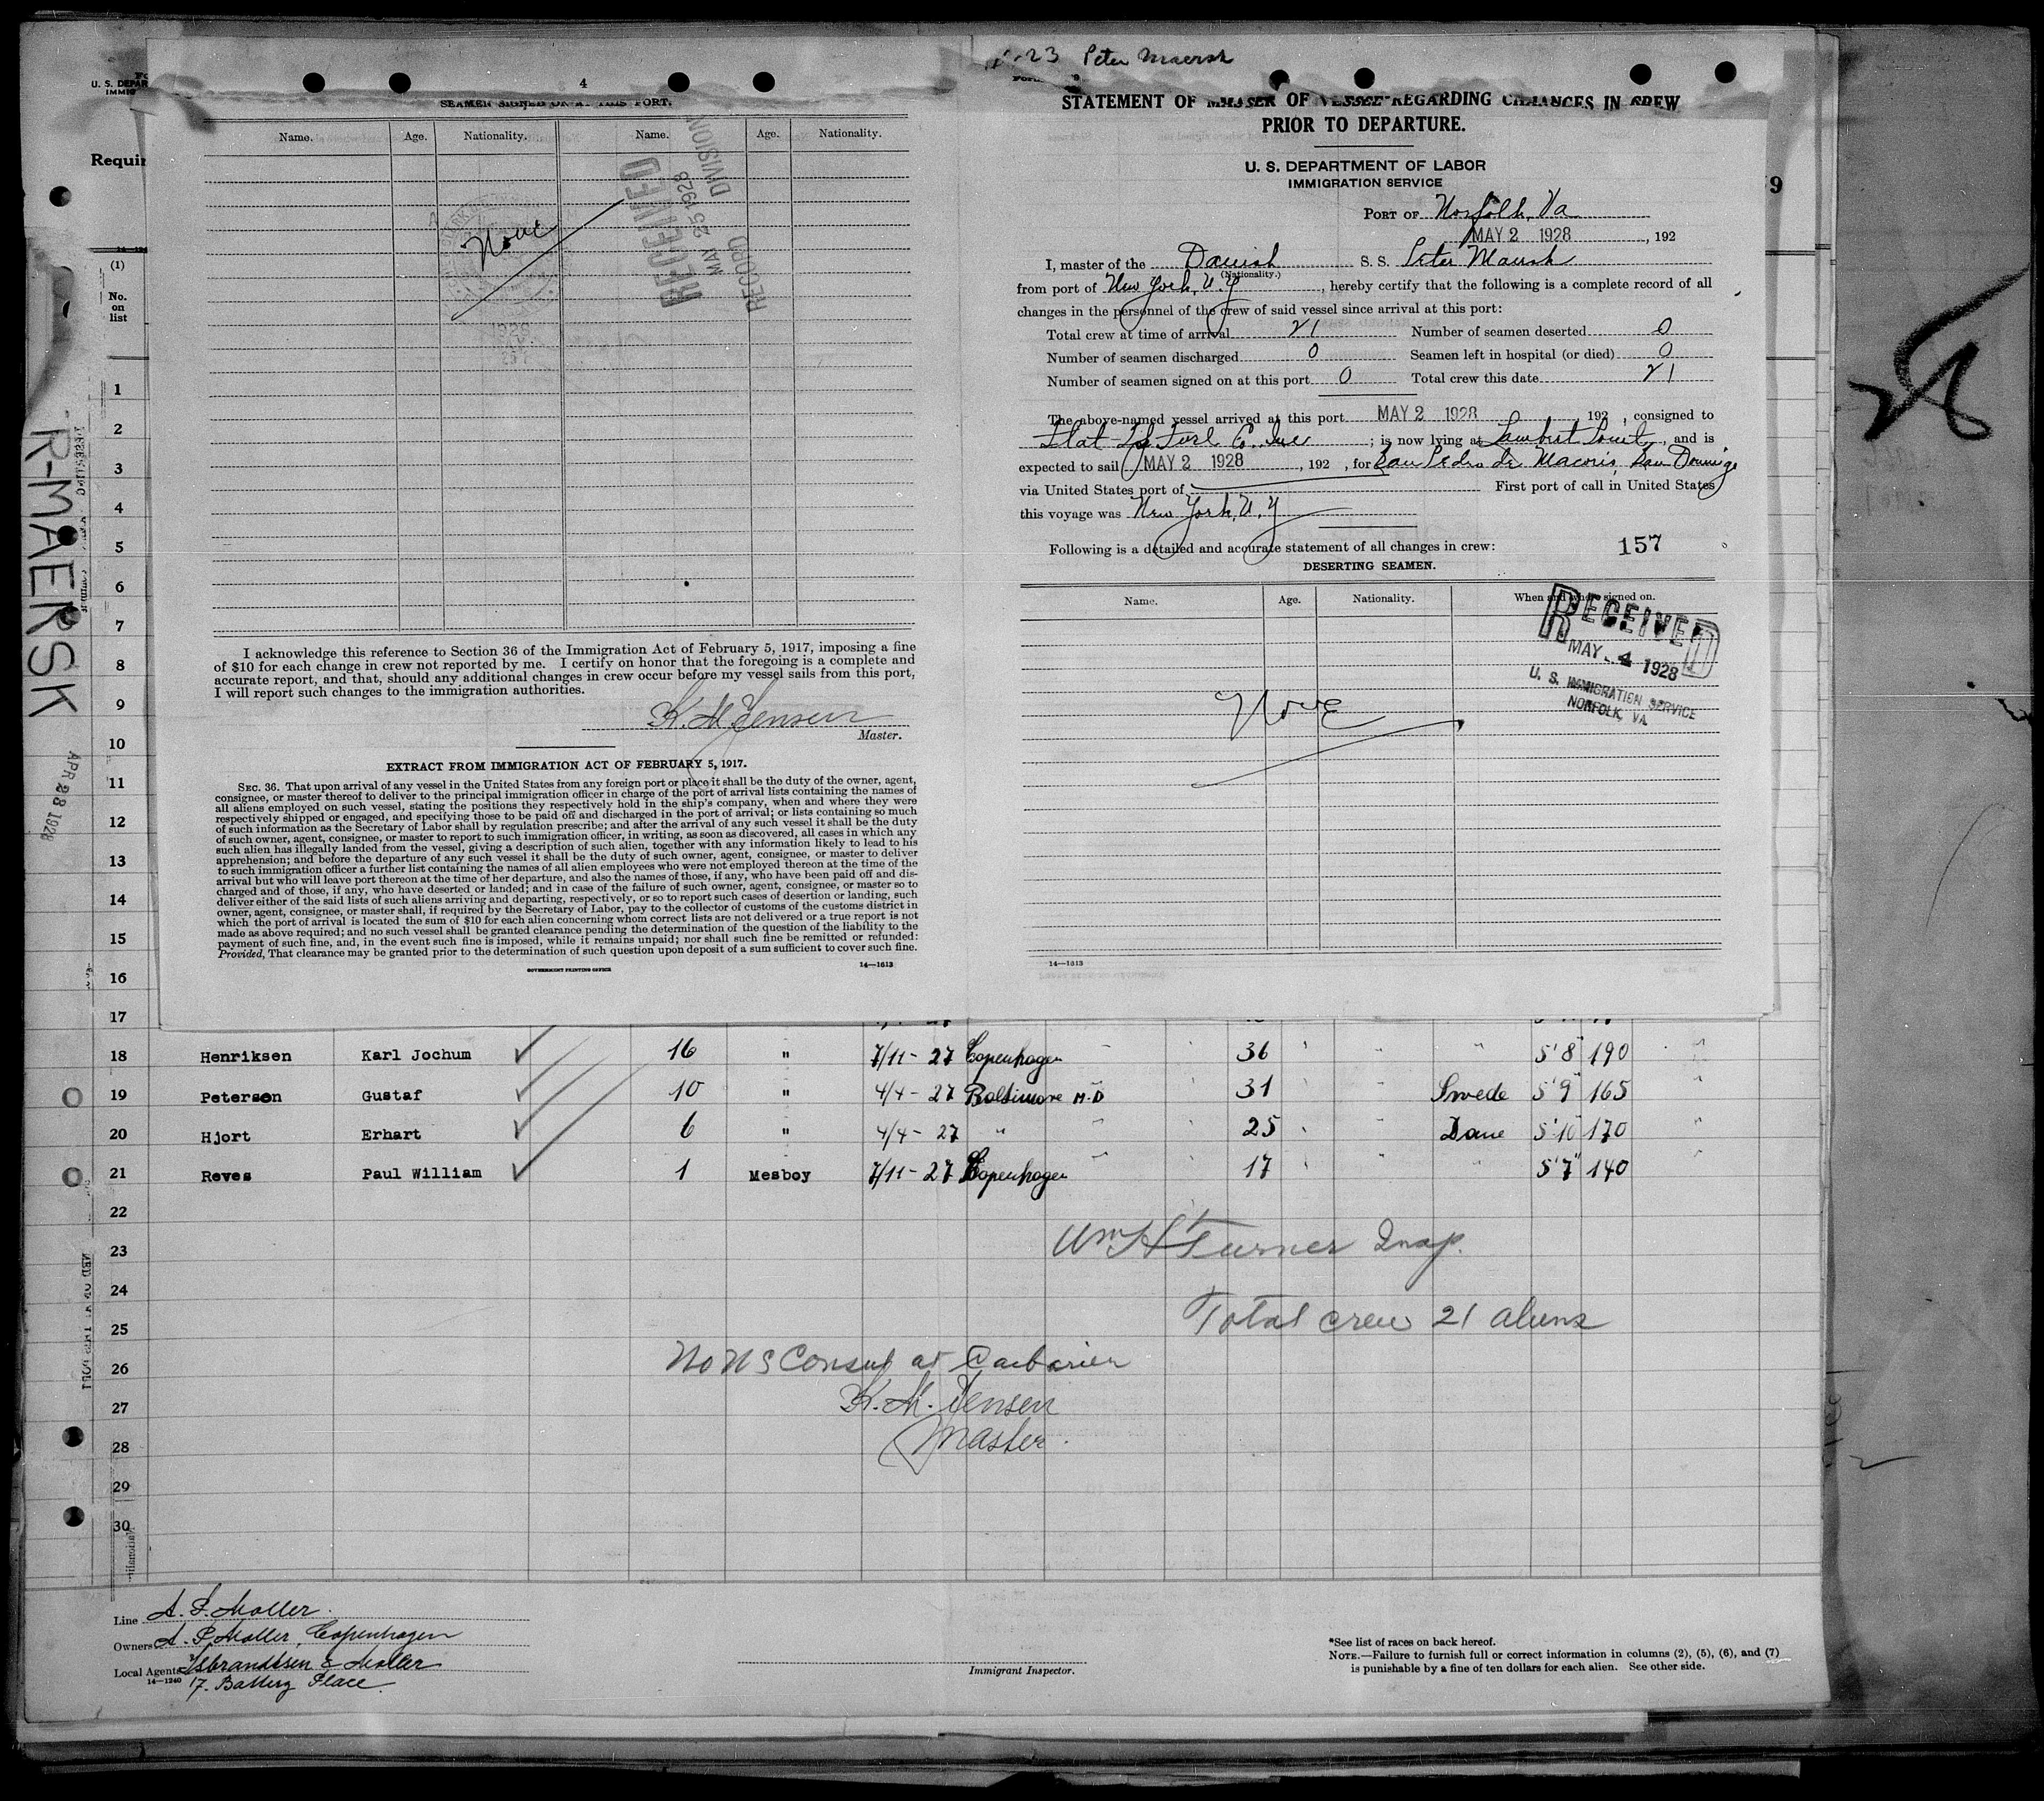 4
SEAMEN SIGNED ON AT THIS PORT.
Name. Age. Nationality. Name. Age. Nationality.
None
RECEIVED
MAY 25 1928
RECORD DIVISION
I acknowledge this reference to Section 36 of the Immigration Act of February 5, 1917, imposing a fine
of $10 for each change in crew not reported by me. I certify on honor that the foregoing is a complete and
accurate report, and that, should any additional changes in crew occur before my vessel sails from this port,
I will report such changes to the immigration authorities.
K. M. Jensen
Master.
EXTRACT FROM IMMIGRATION ACT OF FEBRUARY 5, 1917.
SEC. 36. That upon arrival of any vessel in the United States from any foreign port or place it shall be the duty of the owner, agent,
consignee, or master thereof to deliver to the principal immigration officer in charge of the port of arrival lists containing the names of
all aliens employed on such vessel, stating the positions they respectively hold in the ship's company, when and where they were
respectively shipped or engaged, and specifying those to be paid off and discharged in the port of arrival; or lists containing so much
of such information as the Secretary of Labor shall by regulation prescribe; and after the arrival of any such vessel it shall be the duty
of such owner, agent, consignee, or master to report to such immigration officer, in writing, as soon as discovered, all cases in which any
such alien has illegally landed from the vessel, giving a description of such alien, together with any information likely to lead to his
apprehension; and before the departure of any such vessel it shall be the duty of such owner, agent, consignee, or master to deliver
to such immigration officer a further list containing the names of all alien employees who were not employed thereon at the time of the
arrival but who will leave port thereon at the time of her departure, and also the names of those, if any, who have been paid off and dis-
charged and of those, if any, who have deserted or landed; and in case of the failure of such owner, agent, consignee, or master so to
deliver either of the said lists of such aliens arriving and departing, respectively, or so to report such cases of desertion or landing, such
owner, agent, consignee, or master shall, if required by the Secretary of Labor, pay to the collector of customs of the customs district in
which the port of arrival is located the sum of $10 for each alien concerning whom correct lists are not delivered or a true report is not
made as above required; and no such vessel shall be granted clearance pending the determination of the question of the liability to the
payment of such fine, and, in the event such fine is imposed, while it remains unpaid; nor shall such fine be remitted or refunded:
Provided, That clearance may be granted prior to the determination of such question upon deposit of a sum sufficient to cover such fine.
GOVERNMENT PRINTING OFFICE 14—1613
23 Peter Maersk
STATEMENT OF MASTER OF VESSEL REGARDING CHANGES IN CREW
PRIOR TO DEPARTURE.
U. S. DEPARTMENT OF LABOR
IMMIGRATION SERVICE
PORT OF Norfolk, Va
MAY 2 1928 , 192
I, master of the Danish S. S. Peter Maersk
(Nationality.)
from port of New York, N. Y , hereby certify that the following is a complete record of all
changes in the personnel of the crew of said vessel since arrival at this port:
Total crew at time of arrival 21 Number of seamen deserted 0
Number of seamen discharged 0 Seamen left in hospital (or died) 0
Number of seamen signed on at this port 0 Total crew this date 21
The above-named vessel arrived at this port MAY 2 1928 , 192 , consigned to
Fuel Co. Inc ; is now lying at Lambert Point, and is
expected to sail MAY 2 1928 , 192 , for San Pedro de Macoris, San Domingo
via United States port of First port of call in United States
this voyage was New York, N. Y
Following is a detailed and accurate statement of all changes in crew: 157
DESERTING SEAMEN.
Name. Age. Nationality. When and where signed on.
RECEIVED
MAY 4 1928
U. S. IMMIGRATION SERVICE
NORFOLK, VA.
None
14—1613
U. S. DEPAR
IMMIG
Requir
9
28
(1)
No.
on
list
R-MAERSK
APR 28 1928
1
2
3
4
5
6
7
8
9
10
11
12
13
14
15
16
17
18 Henriksen Karl Jochum 16 " 7/11-27 Copenhagen " 36 " " " 5'8" 190 "
19 Peterson Gustaf 10 " 4/4-27 Baltimore M-D " 31 " " Swede 5'9" 165
20 Hjort Erhart 6 " 4/4-27 " " 25 " " Dane 5'10" 170 "
21 Reves Paul William 1 Mesboy 7/11-27 Copenhagen " 17 " " " 5'7" 140 "
22
23 Wm H Turner Insp.
24
25 Total crew 21 aliens
26 No US Consul at Caibarien
27 K. M. Jensen
28 Master.
29
30
Line A. P. Moller.
Owners A. P. Moller, Copenhagen
Local Agents Isbrandtsen & Moller
14—1240 17. Battery Place.
Immigrant Inspector.
*See list of races on back hereof.
NOTE.—Failure to furnish full or correct information in columns (2), (5), (6), and (7)
is punishable by a fine of ten dollars for each alien. See other side.